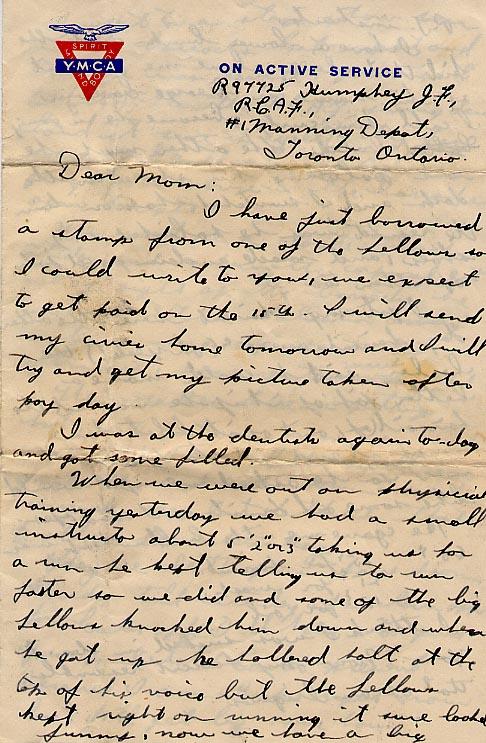 SPIRIT
Y·M·C·A
MIND
BODY
ON ACTIVE SERVICE
R97725 Humphey J.F.,
R.C.A.F.,
#1 Manning Depot,
Toronto Ontario.
Dear Mom:
I have just borrowed
a stamp from one of the fellows so
I could write to you, we expect
to get paid on the 15th. I will send
my civies home tomorrow and I will
try and get my picture taken after
pay day.
I was at the dentists again to-day
and got some filled.
When we were out on physical
training yesterday we had a small
instructor about 5'2"or3" taking us for
a run he kept telling us to run
faster so we did and some of the big
fellows knocked him down and when
he got up he hollered halt at the
top of his voice but the fellows
kept right on running it sure looked
funny, now we have a big